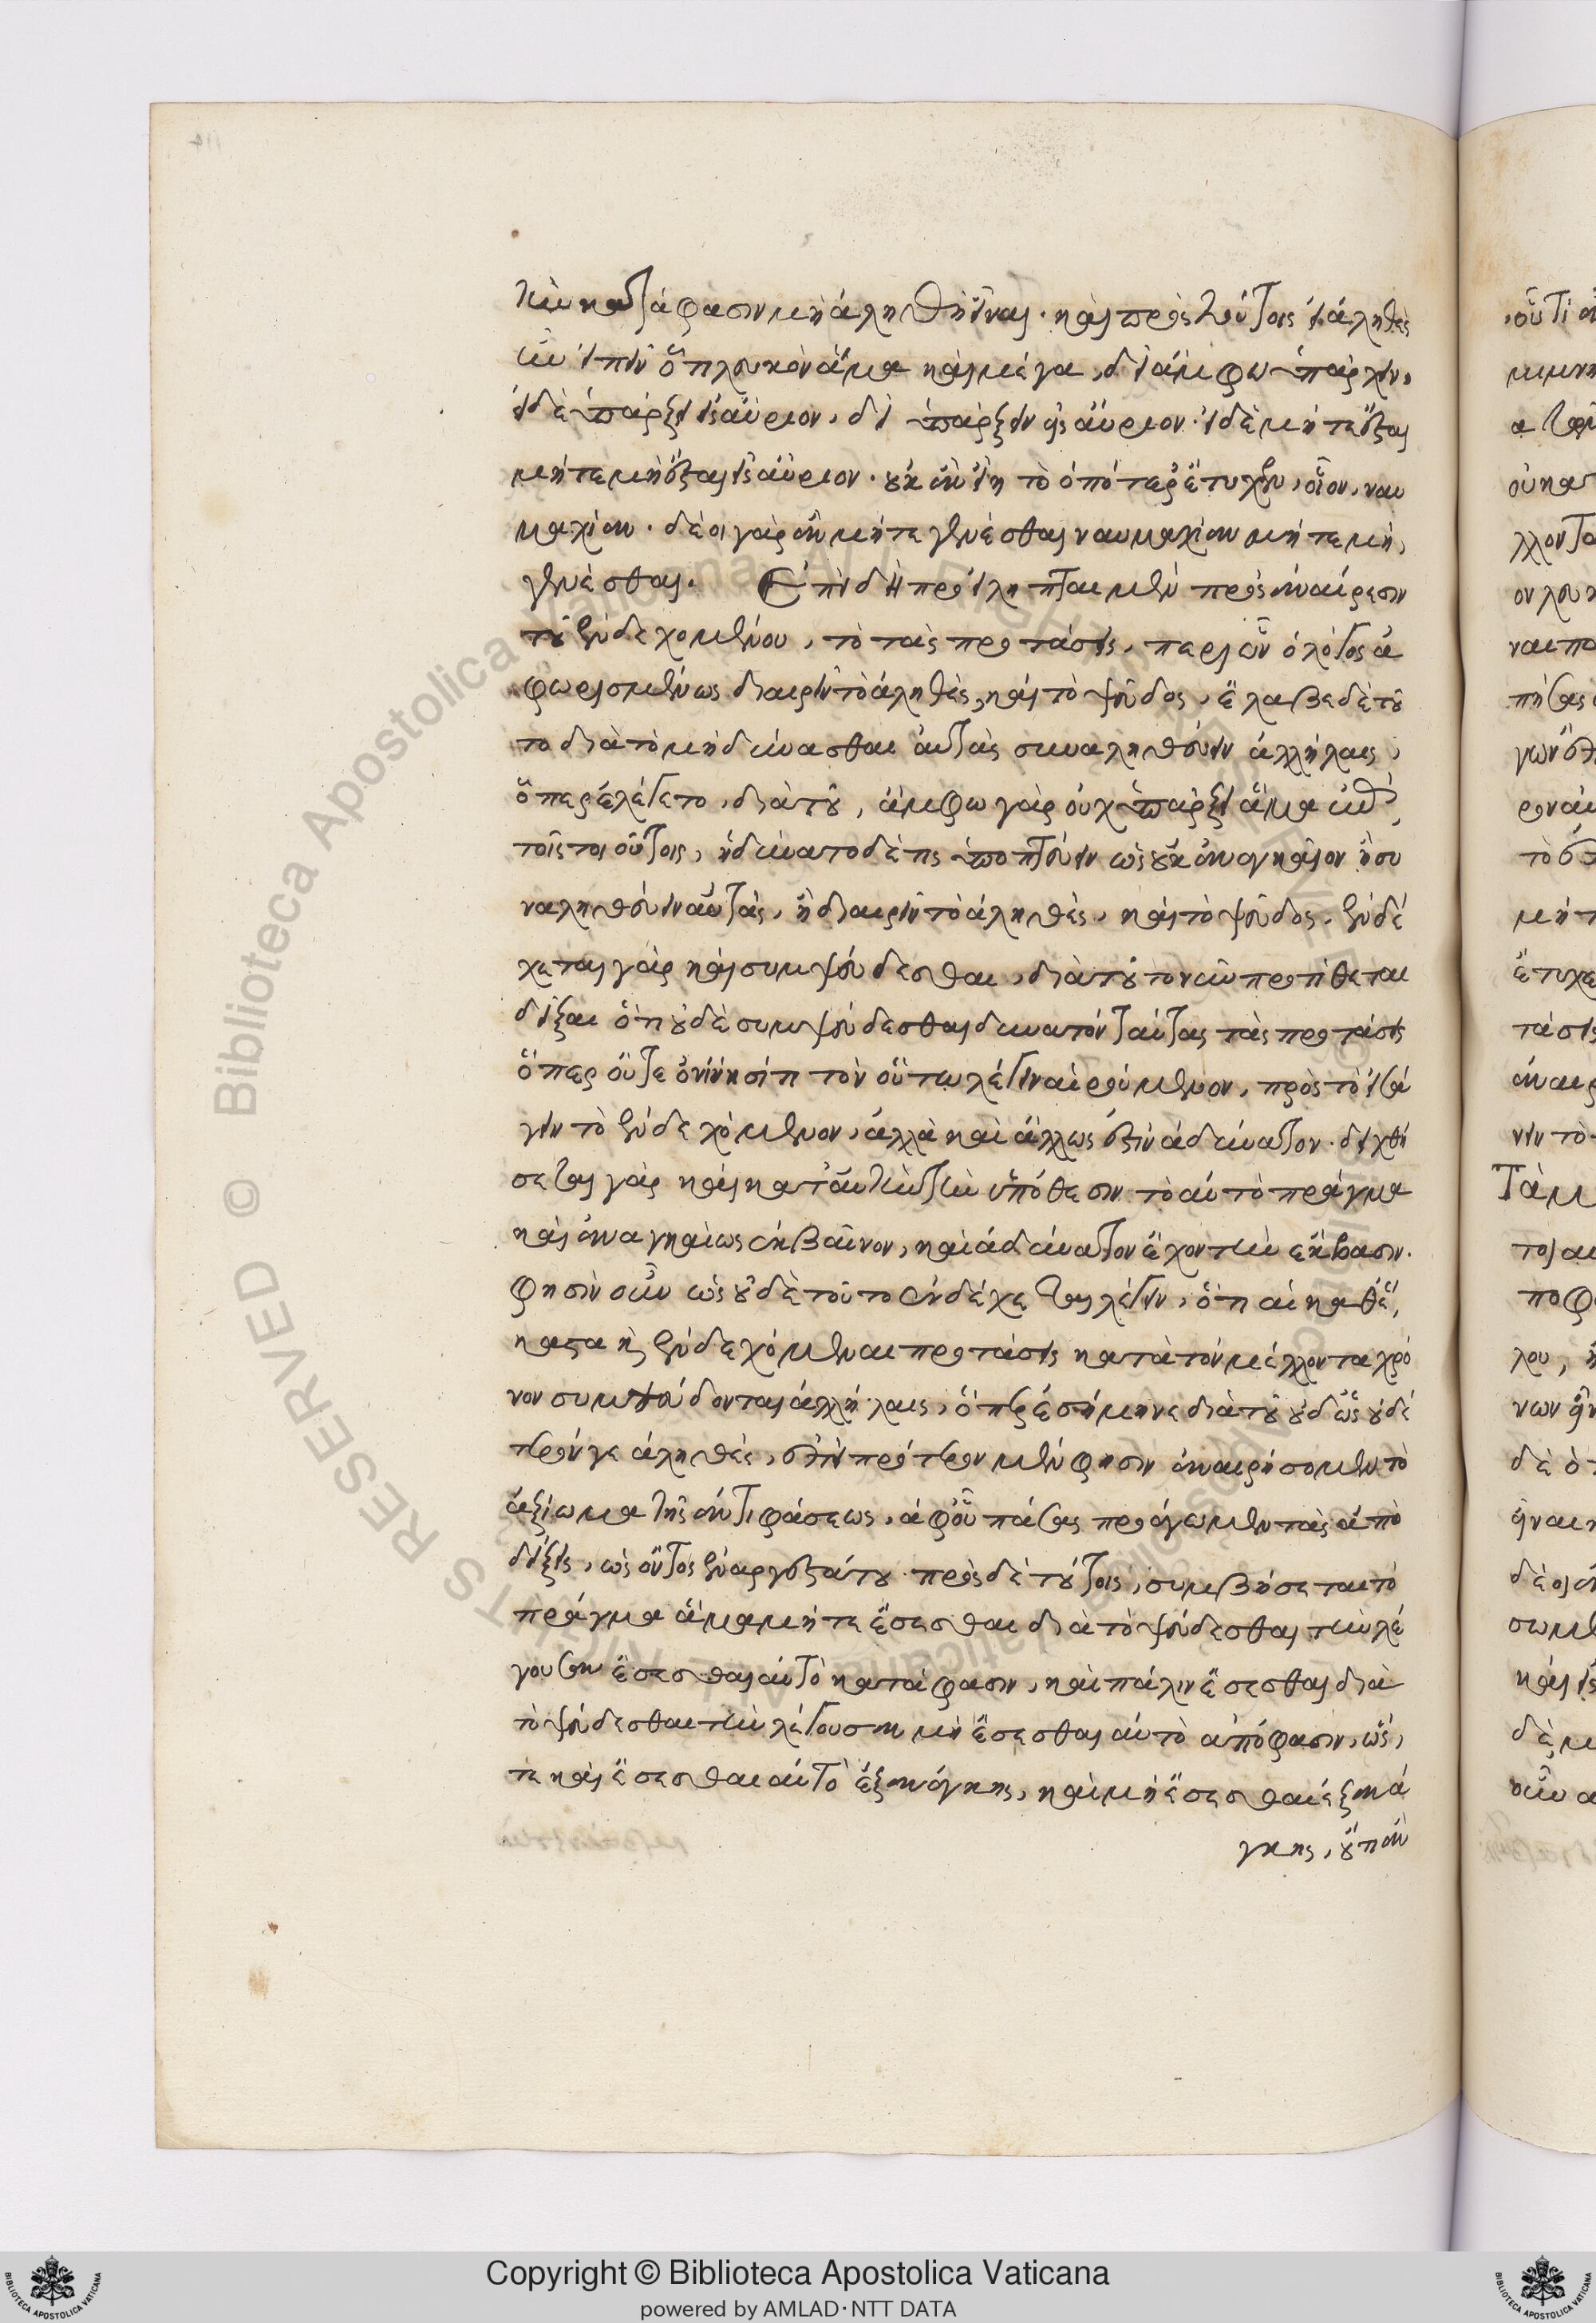 τὴν κατάφασιν μὴ ἀληθῆ εἶναι. καὶ πρὸς τούτοις εἰ ἀληθὲς
ἦν εἰπεῖν ὅτι λευκὸν ἅμα καὶ μέγα, δεῖ ἄμφω ὑπάρχειν,
εἰ δὲ ὑπάρξει εἰς αὔριον, δεῖ ὑπάρξειν εἰς αὔριον. εἰ δὲ μήτε ἔσται
μήτε μὴ ἔσται εἰς αὔριον. οὐκ ἂν εἴη τὸ ὁπότερ' ἔτυχεν, οἷον, ναυ
μαχίαν. δέοι γὰρ ἂν μήτε γενέσθαι ναυμαχίαν μήτε μὴ
γενέσθαι. Ἐπειδὴ προείληπται μὲν πρὸς ἀναίρεσιν
τοῦ ἐνδεχομένου, τὸ τὰς προτάσεις, περὶ ὧν ὁ λόγος ἀ
φωρισμένως διαιρεῖν τὸ ἀληθὲς, καὶ τὸ ψεῦδος, ἔλαβε δὲ τοῦ
το διὰ τὸ μὴ δύνασθαι αὐτὰς συναληθεύειν ἀλλήλαις,
ὅπερ ἐλέγετο, διὰ τοῦ, ἄμφω γὰρ οὐχ ὑπάρξει ἅμα ἐν
τοῖς τοιούτοις, ἠδύνατο δέ τις ὑποπτεύειν ὡς οὐκ ἀναγκαῖον ἢ συ
ναληθεύειν αὐτὰς, ἢ διαιρεῖν τὸ ἀληθὲς, καὶ τὸ ψεῦδος, ἐνδέ
χεται γὰρ καὶ συμψεύδεσθαι, διὰ τοῦτο νῦν προτίθεται
δεῖξαι ὅτι οὐδὲ συμψεύδεσθαι δυνατὸν ταύτας τὰς προτάσεις
ὅπερ οὔτε ὀνίνησί τι τὸν οὕτω λέγειν αἱρούμενον, πρὸς τὸ εἰσά
γειν τὸ ἐνδεχόμενον, ἀλλὰ καὶ ἄλλως ἐστὶν ἀδύνατον. δειχθή
σεται γὰρ καὶ κατ' αὐτὴν τὴν ὑπόθεσιν τὸ αὐτὸ πρᾶγμα
καὶ ἀναγκαίως ἐκβαῖνον, καὶ ἀδύνατον ἔχον τὴν ἔκβασιν.
φησὶν οὖν ὡς οὐδὲ τοῦτο ἐνδέχεται λέγειν, ὅτι αἱ καθέ,
καστα καὶ ἐνδεχόμεναι προτάσεις κατὰ τὸν μέλλοντα χρό
νον συμψεύδονται ἀλλήλαις, ὅπερ ἐσήμηνε διὰ τοῦ οὐδ' ὡς οὐδέ
τερόν γε ἀληθές, ἐπεὶ πρότερον μὲν φησὶν ἀναιρήσομεν τὸ
ἀξίωμα τῆς ἀντιφάσεως, ἀφ' οὗ πάσας προάγωμεν τὰς ἀπο
δείξεις, ὡς ὄντος ἐναργεστάτου. πρὸς δὲ τούτοις, συμβήσεται τὸ
πρᾶγμα ἅμα μήτε ἔσεσθαι διὰ τὸ ψεύδεσθαι τὴν λέ
γουσαν ἔσεσθαι αὐτὸ κατάφασιν, καὶ πάλιν ἔσεσθαι διὰ
τὸ ψεύδεσθαι τὴν λέγουσαν μὴ ἔσεσθαι αὐτὸ ἀπόφασιν, ὥς,
τε καὶ ἔσεσθαι αὐτὸ ἐξ ἀνάγκης, καὶ μὴ ἔσεσθαι ἐξ ἀνά
γκης, οὔτι ἂν
Copyright © Biblioteca Apostolica Vaticana
powered by AMLAD·NTT DATA